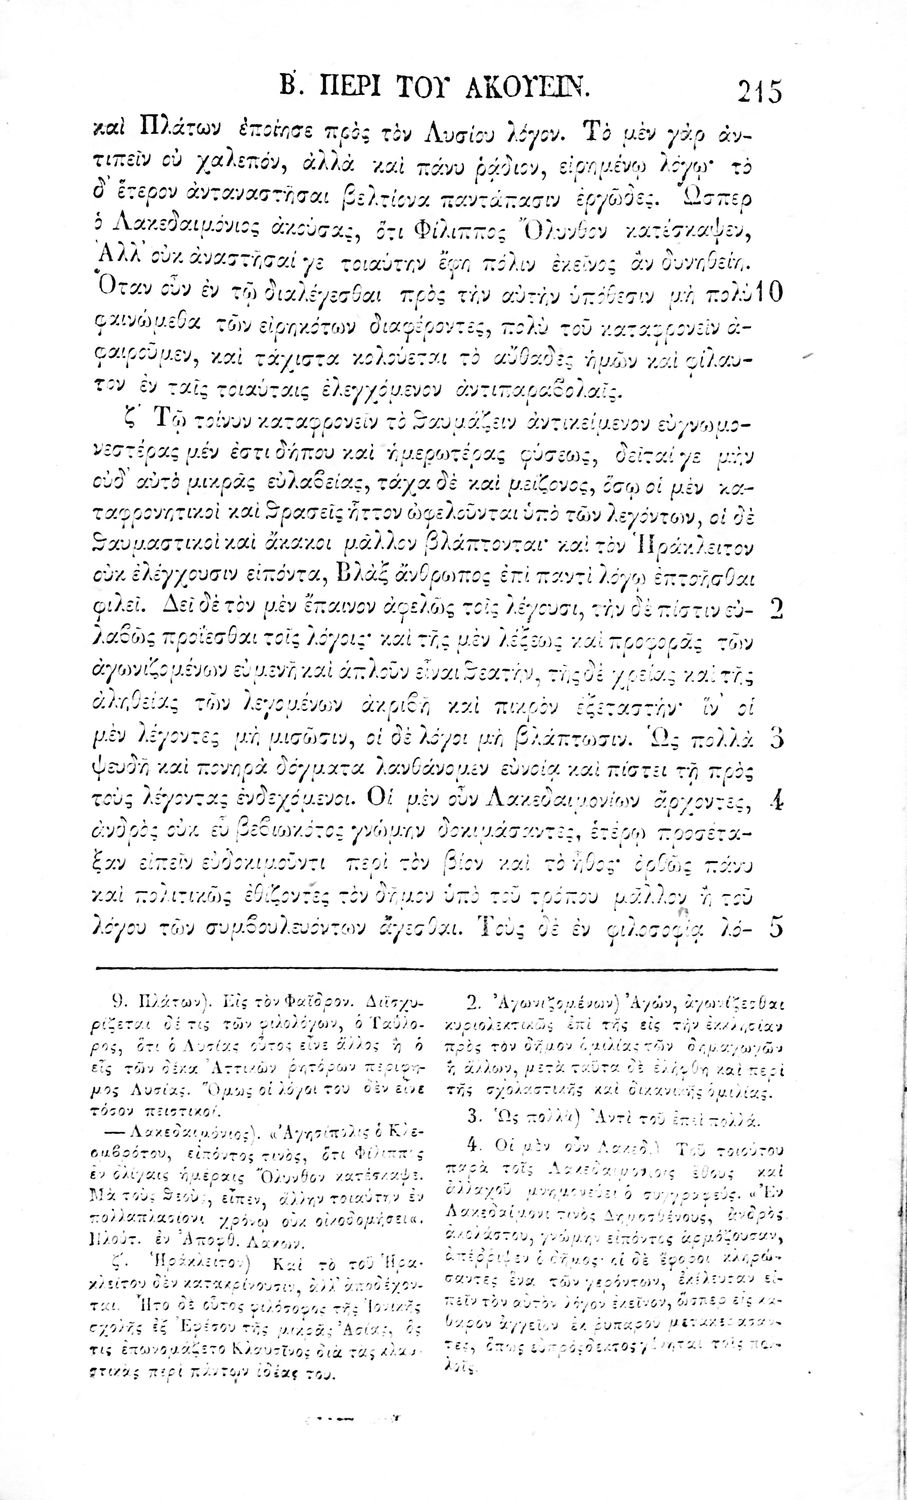 Β΄. ΠΕΡΙ ΤΟΥ ΑΚΟΥΕΙΝ. 215
καὶ Πλάτων ἐποίησε πρὸς τὸν Λυσίου λόγον. Τὸ μὲν γὰρ ἀν-
τιπεῖν οὐ χαλεπόν, ἀλλὰ καὶ πάνυ ῥᾴδιον, εἰρημένῳ λόγῳ· τὸ
δ' ἕτερον ἀνταναστῆσαι βελτίονα παντάπασιν ἐργῶδες. Ὥσπερ
ὁ Λακεδαιμόνιος ἀκούσας, ὅτι Φίλιππος Ὄλυνθον κατέσκαψεν,
Ἀλλ' οὐκ ἀναστῆσαί γε τοιαύτην ἔφη πόλιν ἐκεῖνος ἂν δυνηθείη.
Ὅταν οὖν ἐν τῷ διαλέγεσθαι πρὸς τὴν αὐτὴν ὑπόθεσιν μὴ πολὺ 10
φαινώμεθα τῶν εἰρηκότων διαφέροντες, πολὺ τοῦ καταφρονεῖν ἀ-
φαιροῦμεν, καὶ τάχιστα κολούεται τὸ αὔθαδες ἡμῶν καὶ φίλαυ-
τον ἐν ταῖς τοιαύταις ἐλεγχόμενον ἀντιπαραβολαῖς.
ζ΄ Τῷ τοίνυν καταφρονεῖν τὸ θαυμάζειν ἀντικείμενον εὐγνωμο-
νεστέρας μέν ἐστι δήπου καὶ ἡμερωτέρας φύσεως, δεῖταί γε μὴν
οὐδ' αὐτὸ μικρᾶς εὐλαβείας, τάχα δὲ καὶ μείζονος, ὅσῳ οἱ μὲν κα-
ταφρονητικοὶ καὶ θρασεῖς ἧττον ὠφελοῦνται ὑπὸ τῶν λεγόντων, οἱ δὲ
θαυμαστικοὶ καὶ ἄκακοι μᾶλλον βλάπτονται· καὶ τὸν Ἡράκλειτον
οὐκ ἐλέγχουσιν εἰπόντα, Βλὰξ ἄνθρωπος ἐπὶ παντὶ λόγῳ ἐπτοῆσθαι
φιλεῖ. Δεῖ δὲ τὸν μὲν ἔπαινον ἀφελῶς τοῖς λέγουσι, τὴν δὲ πίστιν εὐ- 2
λαβῶς προΐεσθαι τοῖς λόγοις· καὶ τῆς μὲν λέξεως καὶ προφορᾶς τῶν
ἀγωνιζομένων εὐμενῆ καὶ ἁπλοῦν εἶναι θεατήν, τῆς δὲ χρείας καὶ τῆς
ἀληθείας τῶν λεγομένων ἀκριβῆ καὶ πικρὸν ἐξεταστήν· ἵν' οἱ
μὲν λέγοντες μὴ μισῶσιν, οἱ δὲ λόγοι μὴ βλάπτωσιν. Ὡς πολλὰ 3
ψευδῆ καὶ πονηρὰ δόγματα λανθάνομεν εὐνοίᾳ καὶ πίστει τῇ πρὸς
τοὺς λέγοντας ἐνδεχόμενοι. Οἱ μὲν οὖν Λακεδαιμονίων ἄρχοντες, 4
ἀνδρὸς οὐκ εὖ βεβιωκότος γνώμην δοκιμάσαντες, ἑτέρῳ προσέτα-
ξαν εἰπεῖν εὐδοκιμοῦντι περὶ τὸν βίον καὶ τὸ ἦθος· ὀρθῶς πάνυ
καὶ πολιτικῶς ἐθίζοντες τὸν δῆμον ὑπὸ τοῦ τρόπου μᾶλλον ἢ τοῦ
λόγου τῶν συμβουλευόντων ἄγεσθαι. Τοὺς δὲ ἐν φιλοσοφίᾳ λό- 5
9. Πλάτων). Εἰς τὸν Φαῖδρον. Διϊσχυ-
ρίζεται δέ τις τῶν φιλολόγων, ὁ Ταϋλο-
ρος, ὅτι ὁ Λυσίας οὗτος εἶνε ἄλλος ἢ ὁ
εἷς τῶν δέκα Ἀττικῶν ῥητόρων περίφη-
μος Λυσίας. Ὅμως οἱ λόγοι του δὲν εἶνε
τόσον πειστικοί.
— Λακεδαιμόνιος). «Ἀγησίπολις ὁ Κλε-
ομβρότου, εἰπόντος τινός, ὅτι Φίλιππος
ἐν ὀλίγαις ἡμέραις Ὄλυνθον κατέσκαψε.
Μὰ τοὺς θεούς, εἶπεν, ἄλλην τοιαύτην ἐν
πολλαπλασίονι χρόνῳ οὐκ οἰκοδομήσει».
Πλούτ. ἐν Ἀποφθ. Λακων.
ζ΄. Ἡράκλειτον) Καὶ τὸ τοῦ Ἡρα-
κλείτου δὲν κατακρίνουσιν, ἀλλ' ἀποδέχον-
ται. Ἦτο δὲ οὗτος φιλόσοφος τῆς Ἰονικῆς
σχολῆς ἐξ Ἐφέσου τῆς μικρᾶς Ἀσίας, ὅς
τις ἐπωνομάζετο Κλαυσῖνος διὰ τὰς κλαυ-
στικὰς περὶ πάντων ἰδέας του.
2. Ἀγωνιζομένων) Ἀγών, ἀγωνίζεσθαι
κυριολεκτικῶς ἐπὶ τῆς εἰς τὴν ἐκκλησίαν
πρὸς τὸν δῆμον ὁμιλίας τῶν δημαγωγῶν
ἢ ἄλλων, μετὰ ταῦτα δὲ ἐλήφθη καὶ περὶ
τῆς σχολαστικῆς καὶ δικανικῆς ὁμιλίας.
3. Ὡς πολλὰ) Ἀντὶ τοῦ ἐπεὶ πολλά.
4. Οἱ μὲν οὖν Λακεδ.) Τοῦ τοιούτου
παρὰ τοῖς Λακεδαιμονίοις ἔθους καὶ
ἀλλαχοῦ μνημονεύει ὁ συγγραφεύς. «Ἐν
Λακεδαίμονι τινὸς Δημοσθένους, ἀνδρὸς
ἀκολάστου, γνώμην εἰπόντος ἁρμόζουσαν,
ἀπέρριψεν ὁ δῆμος· οἱ δὲ ἔφοροι κληρώ-
σαντες ἕνα τῶν γερόντων, ἐκέλευσαν εἰ-
πεῖν τὸν αὐτὸν λόγον ἐκεῖνον, ὥσπερ εἰς κα-
θαρὸν ἀγγεῖον ἐκ ῥυπαροῦ μετακεράσαν-
τες, ὅπως εὐπρόσδεκτος γένηται τοῖς πολ-
λοῖς.